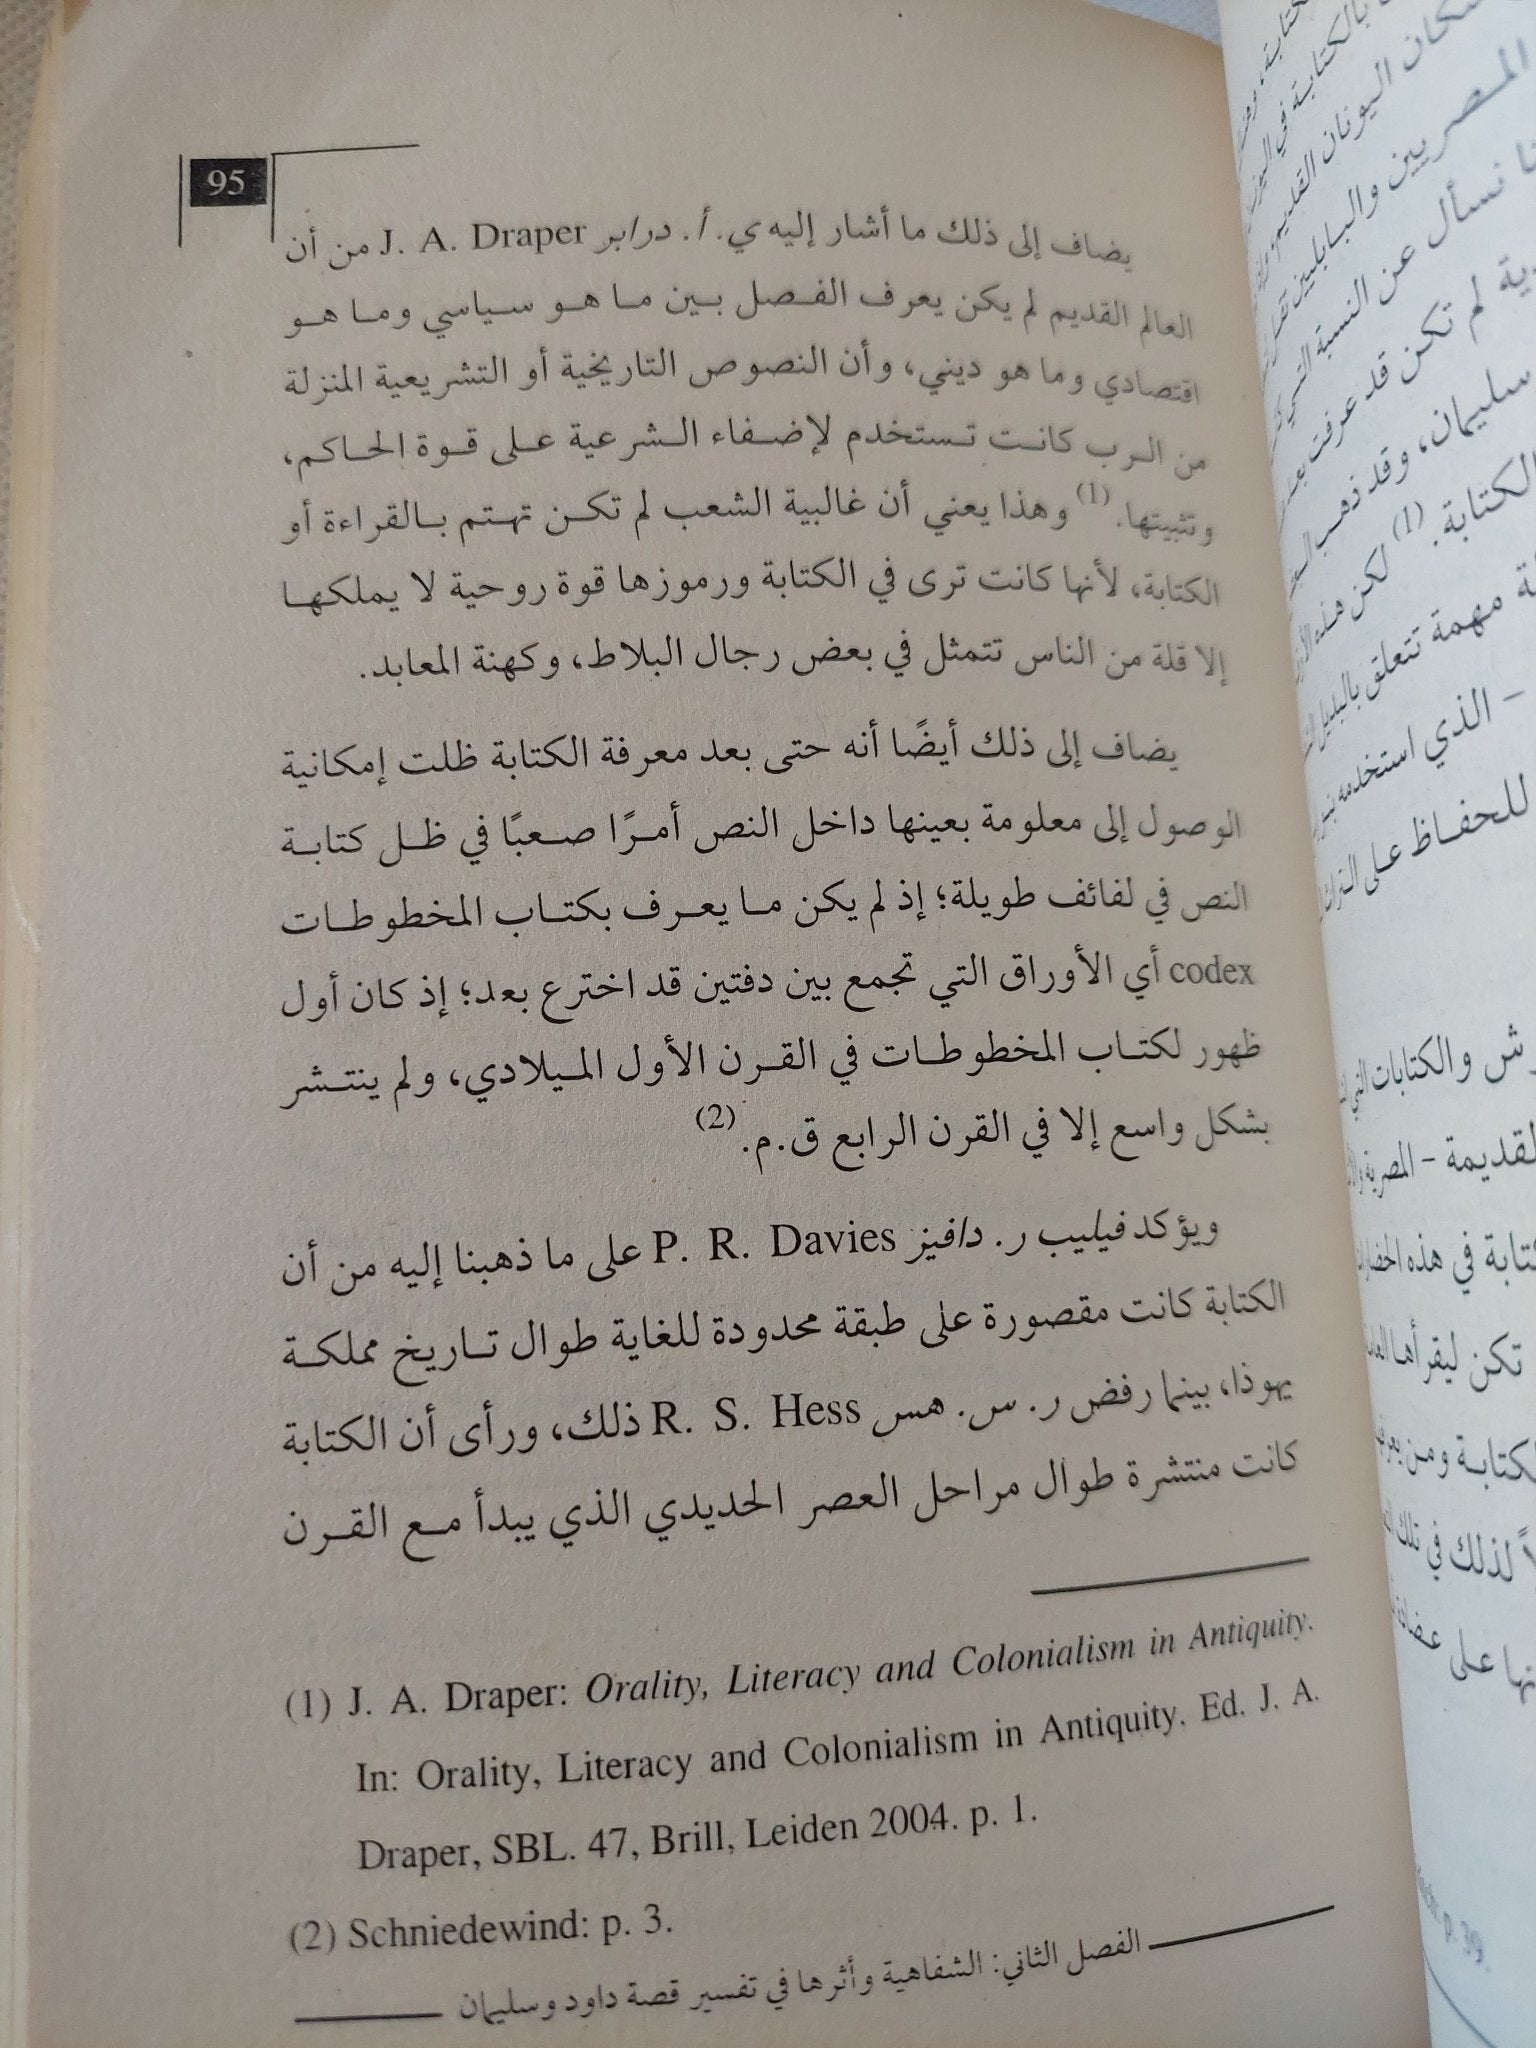 95
يضاف إلى ذلك ما أشار إليه ي. أ. درابر J. A. Draper من أن
العالم القديم لم يكن يعرف الفصل بين ما هو سياسي وما هو
اقتصادي وما هو ديني، وأن النصوص التاريخية أو التشريعية المنزلة
من الرب كانت تستخدم لإضفاء الشرعية على قوة الحاكم،
وتثبيتها. (1) وهذا يعني أن غالبية الشعب لم تكن تهتم بالقراءة أو
الكتابة، لأنها كانت ترى في الكتابة ورموزها قوة روحية لا يملكها
إلا قلة من الناس تتمثل في بعض رجال البلاط، وكهنة المعابد.
يضاف إلى ذلك أيضًا أنه حتى بعد معرفة الكتابة ظلت إمكانية
الوصول إلى معلومة بعينها داخل النص أمرًا صعبًا في ظل كتابة
النص في لفائف طويلة؛ إذ لم يكن ما يعرف بكتاب المخطوطات
codex أي الأوراق التي تجمع بين دفتين قد اخترع بعد؛ إذ كان أول
ظهور لكتاب المخطوطات في القرن الأول الميلادي، ولم ينتشر
بشكل واسع إلا في القرن الرابع ق.م. (2)
ويؤكد فيليب ر. دافيز P. R. Davies على ما ذهبنا إليه من أن
الكتابة كانت مقصورة على طبقة محدودة للغاية طوال تاريخ مملكة
يهوذا، بينما رفض ر. س. هس R. S. Hess ذلك، ورأى أن الكتابة
كانت منتشرة طوال مراحل العصر الحديدي الذي يبدأ مع القرن
(1) J. A. Draper: Orality, Literacy and Colonialism in Antiquity.
In: Orality, Literacy and Colonialism in Antiquity. Ed. J. A.
Draper, SBL. 47, Brill, Leiden 2004. p. 1.
(2) Schniedewind: p. 3.
الفصل الثاني: الشفاهية وأثرها في تفسير قصة داود وسليمان
سكان اليونان القديم
المصريين والبابليين
نسأل عن النسبة التي
لم تكن قد عرفت بعد
سليمان، وقد ذهب
الكتابة. (1) لكن هذه
مهمة تتعلق بالبديل
– الذي استخدمه
للحفاظ على التراث
والكتابات التي
القديمة – المصرية
في هذه
تكن ليقرأها
الكتابة ومن
لذلك في تلك
على
p. 39